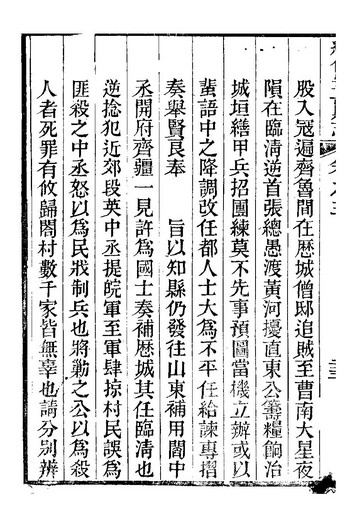 股入寇遍齊魯間在歴城僧邸追賊至曹南大星夜
隕在臨淸逆首張總愚渡黃河擾直東公籌糧餉治
城垣繕甲兵招團練莫不先事預圖當機立辦或以
蜚語中之降調改任都人士大爲不平任給諫專摺
奏舉賢良奉　旨以知縣仍發往山東補用閻中
丞開府齊疆一見許爲國士奏補歴城其任臨淸也
逆捻犯近郊段英中丞提皖軍至軍肆掠村民誤爲
匪殺之中丞怒以爲民戕制兵也將勦之公以爲殺
人者死罪有攸歸闔村數千家皆無辜也請分别辨